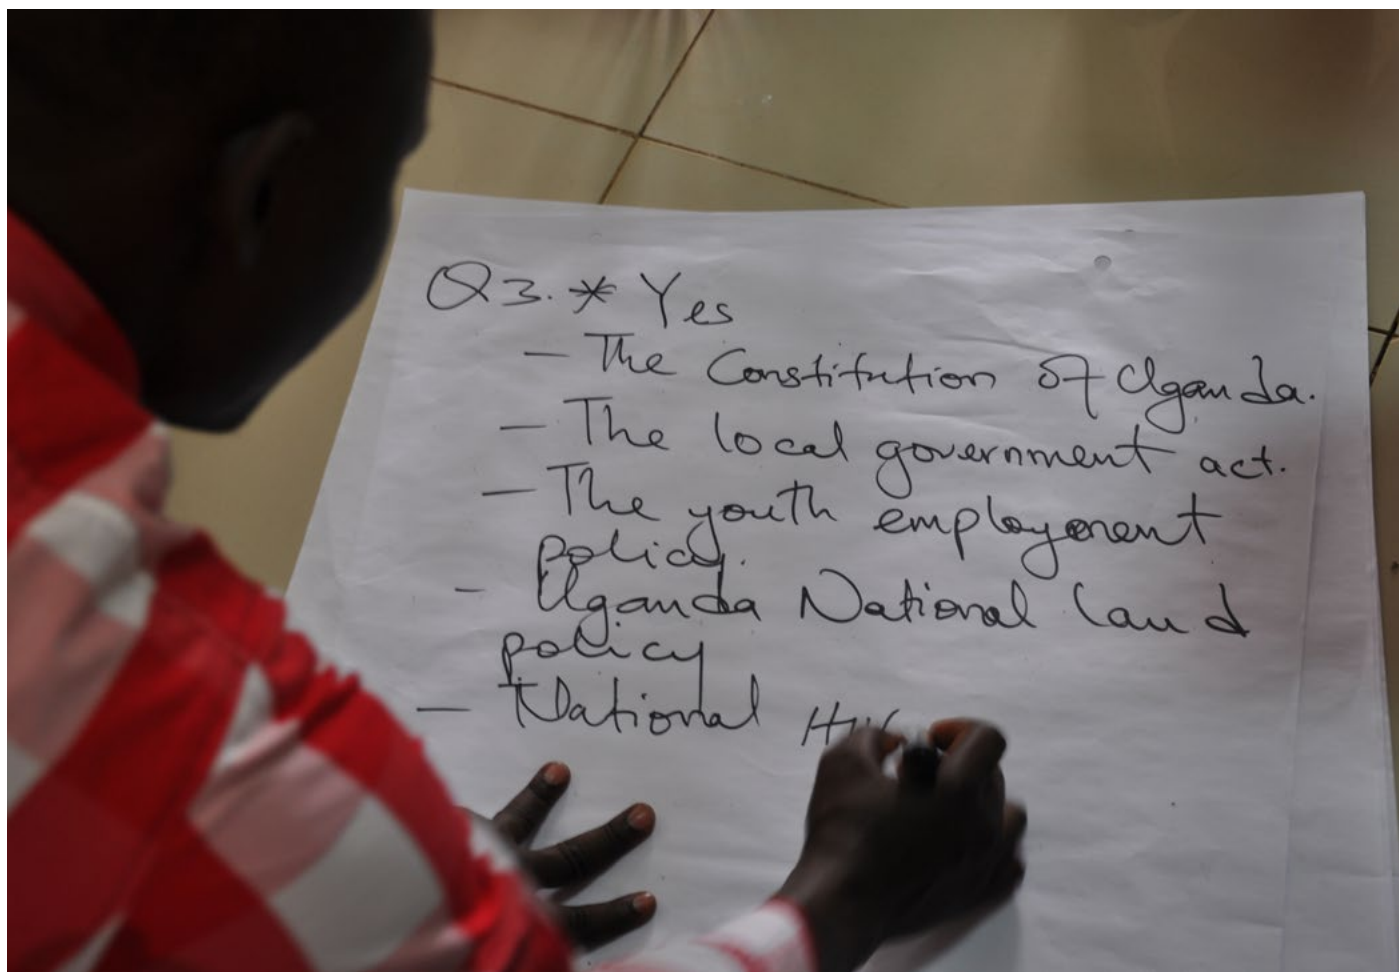 Q3. * Yes
- The Constitution of Uganda.
- The local government act.
- The youth employment
policy.
- Uganda National land
policy
- National